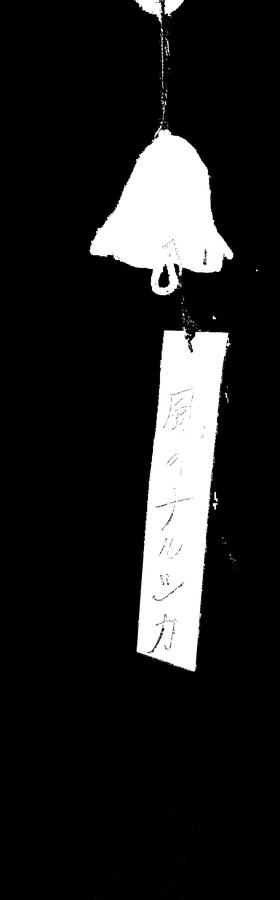 風のナルシカ